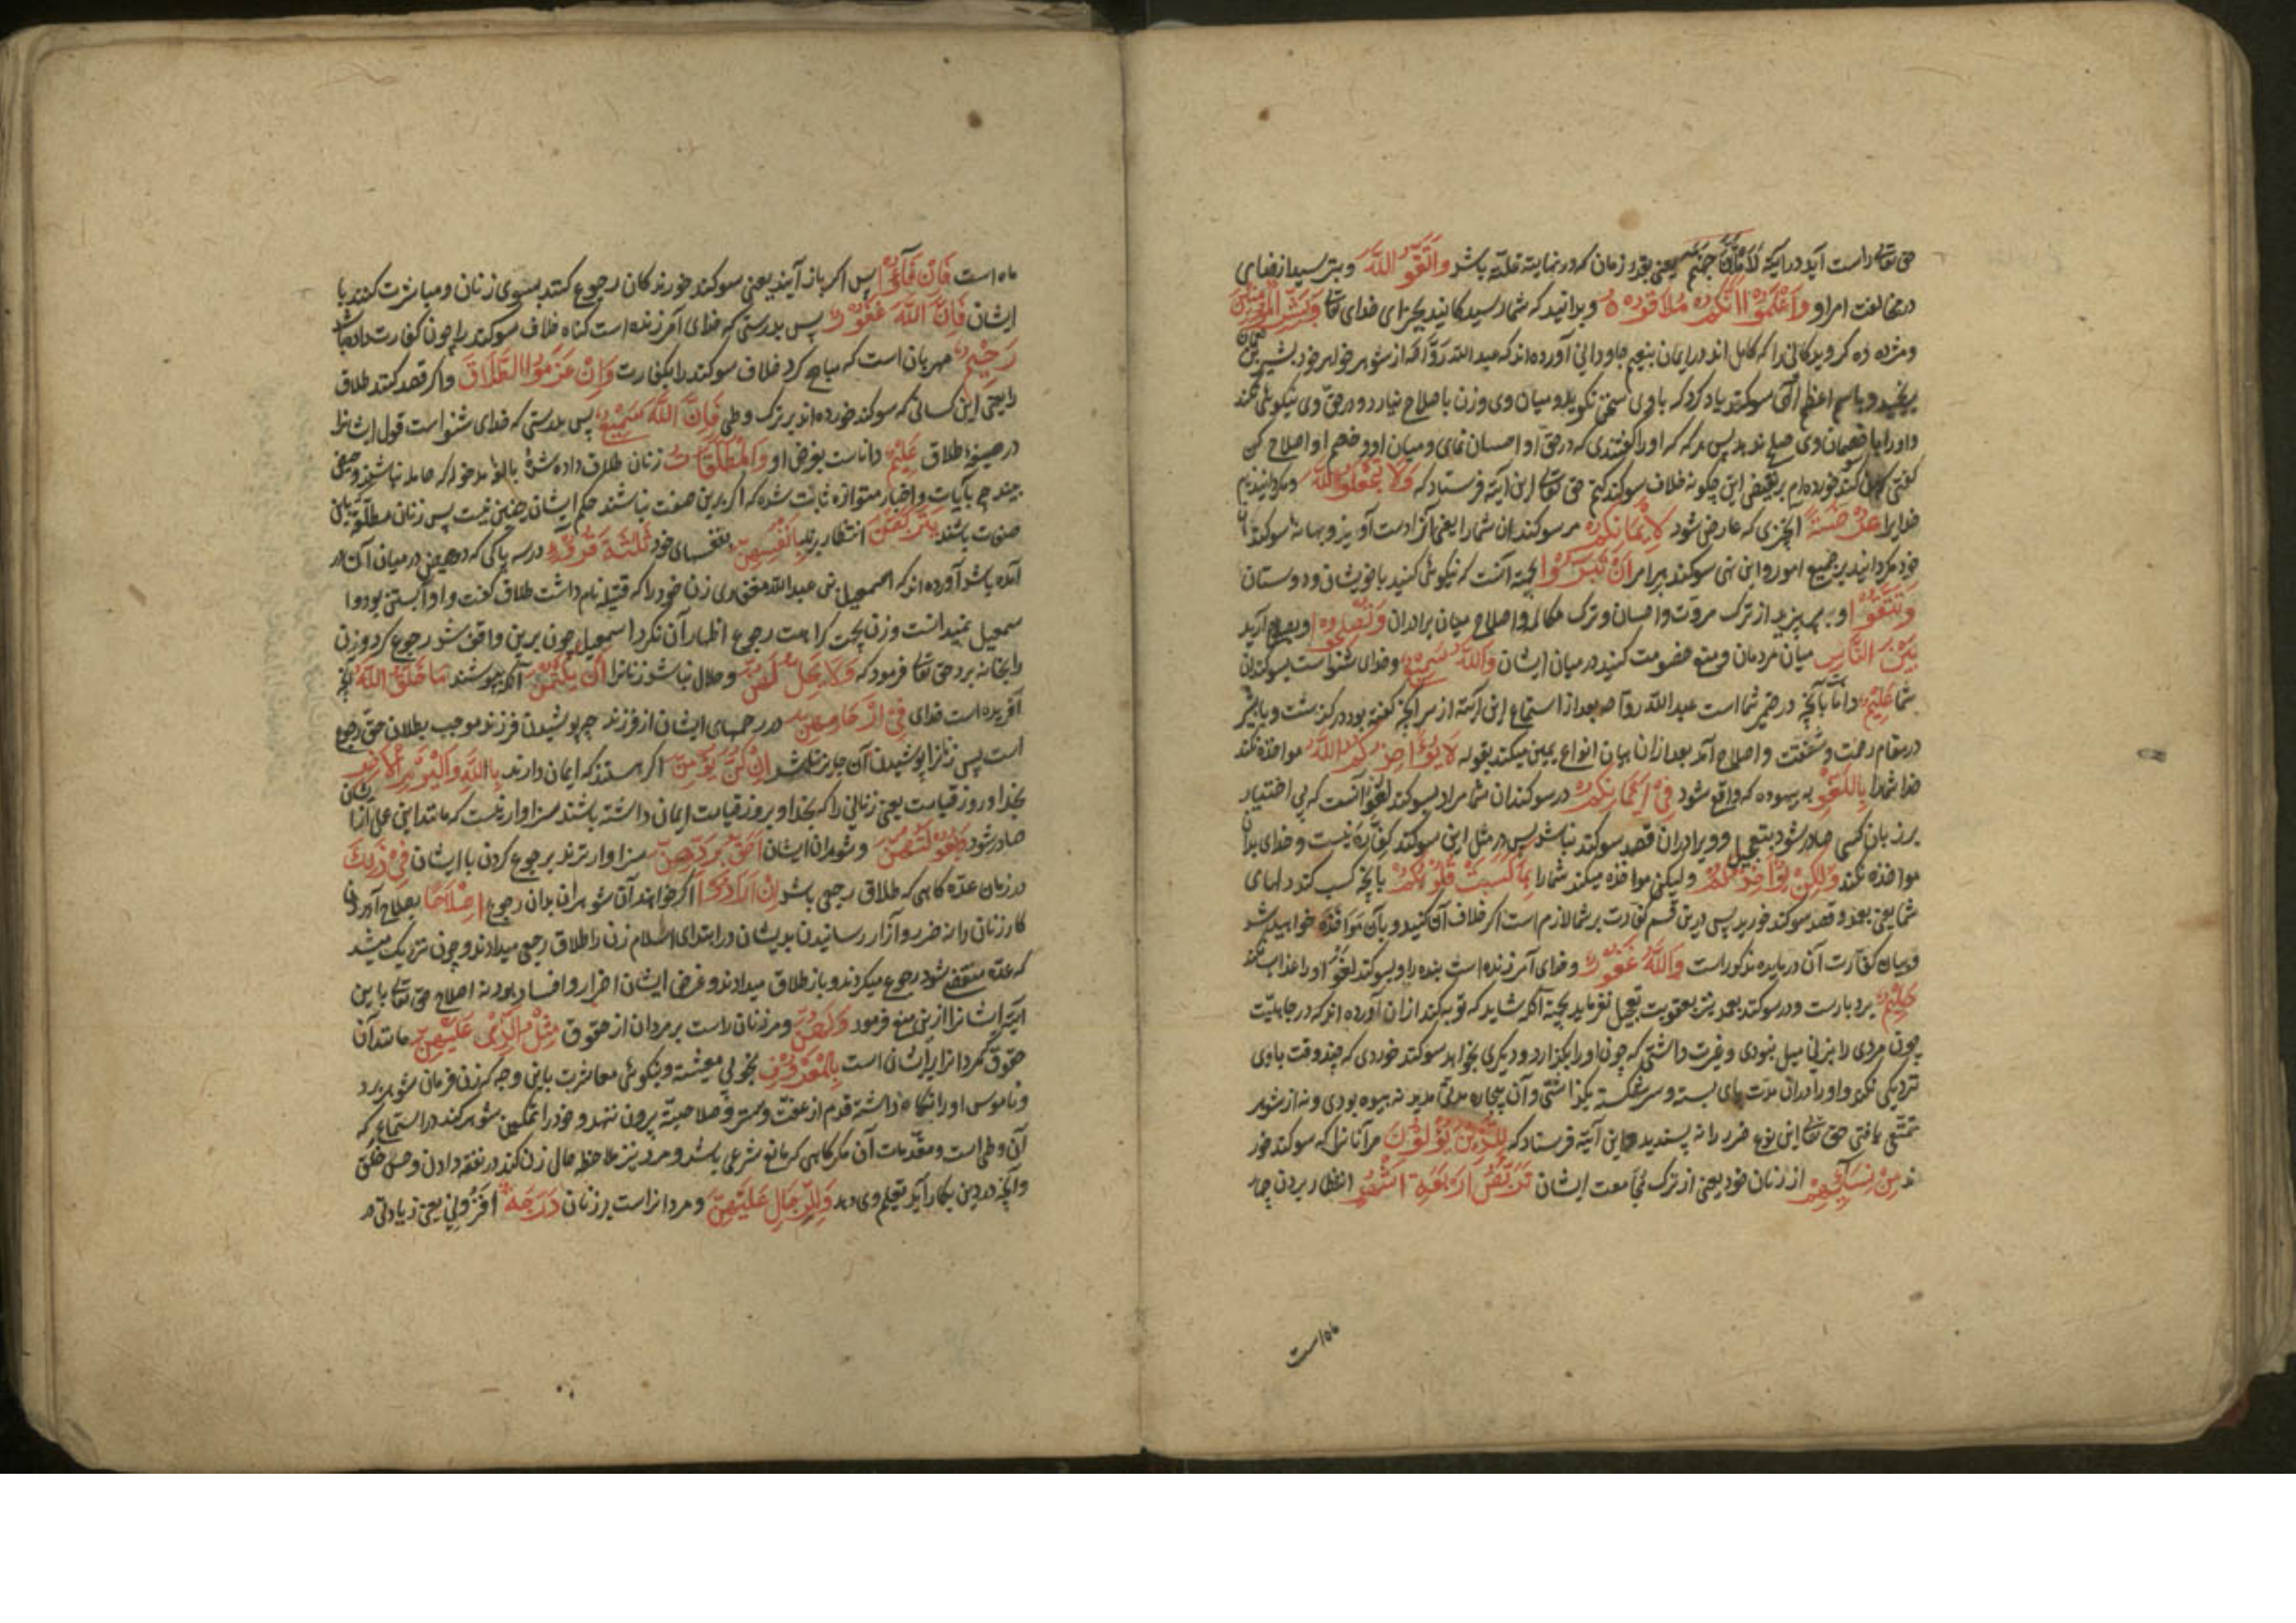 حق تعالی راست آید در آیه لَأَمْلَأَنَّ جَهَنَّمَ یعنی بقدر زمان که در نهایت قلة باشد وَاتَّقُوا اللَّهَ و بترسید از خدای
در مخالفت امر او وَاعْلَمُوا أَنَّكُمْ مُلَاقُوهُ و بدانید که شما رسیدکانید بجزای خدای تعالی وَبَشِّرِ الْمُؤْمِنِينَ
و مژده ده کرویدکانی را که کامل اند در ایمان بنعیم جاودانی آورده اند که عبدالله رواحه از شوهر خواهر خود بشیر بن نعمان
برنجید و باسم اعظم الهی سوکند یاد کرد که باوی سخن نکوید و میان وی و زن باصلاح نیارد و در حق وی نیکوئی نکند
و او را با خصمان وی صلح ندهد پس هرکه که او را کفتندی که در حق او احسان نمای و میان او و خصم او اصلاح کن
کفتی سوکند خورده ام بر نقیض این چکونه خلاف سوکند کنم حق تعالی این آیة فرستاد که وَلَا تَجْعَلُوا اللَّهَ و مکردانید نام
خدایرا عُرْضَةً آنچیزی که عارض شود لِأَيْمَانِكُمْ مر سوکندان شما را یعنی آنرا دست آویز و بهانه سوکند
خود مکردانید بر جمیع امور و این نهی سوکند بر امر أَنْ تَبَرُّوا بجهة آنست که نیکوئی کنید با خویشان و دوستان
وَتَتَّقُوا و بپرهیزید از ترک مروت و احسان و ترک مکالمه و اصلاح میان برادران وَتُصْلِحُوا و بصلاح آرید
بَيْنَ النَّاسِ میان مردمان و منع خصومت کنید در میان ایشان وَاللَّهُ سَمِيعٌ و خدای شنواست بسوکندان
شما عَلِيمٌ داناست بآنچه در ضمیر شما است عبدالله رواحه بعد از استماع این آیة از سر آنچه کفته بود در کذشت و با بشیر
در مقام رحمت و شفقت و اصلاح آمد بعد از ان بیان انواع یمین میکند بقوله لَا يُؤَاخِذُكُمُ اللَّهُ مواخذه نکند
خدا شما را بِاللَّغْوِ به بیهوده که واقع شود فِي أَيْمَانِكُمْ در سوکندان شما مراد بسوکند لغو آنست که بی اختیار
بر زبان کسی صادر شود بتعجیل و ویرا در ان قصد سوکند نباشد پس در مثل این سوکند کفارة نیست و خدای بدان
مواخذه نکند وَلَكِنْ يُؤَاخِذُكُمْ و لیکن مواخذه میکند شما را بِمَا كَسَبَتْ قُلُوبُكُمْ بآنچه کسب کند دلهای
شما یعنی بعمد و قصد سوکند خورید پس درین قسم کفارت بر شما لازم است اکر خلاف آن کنید و بآن مواخذه خواهید شد
و بیان کفارت آن در مایده مذکور است وَاللَّهُ غَفُورٌ و خدای آمرزنده است بنده را و بسوکند لغو او را عذاب نکند
حَلِيمٌ بردبارست و در سوکند بعمد نیز بعقوبت تعجیل نفرماید بجهة آنکه شاید که توبه کند از ان آورده اند که در جاهلیت
چون مردی را بزنی میل نبودی و غیرت داشتی که چون او را بکذارد و دیکری بخواهد سوکند خوردی که چند وقت باوی
نزدیکی نکند و او را در ان مدت پای بسته و سر شکسته بکذاشتی و آن بیچاره مدتی مدید نه بیوه بودی و نه از شوهر
تمتع یافتی حق تعالی این نوع ضرر را نه پسندید و این آیة فرستاد که لِلَّذِينَ يُؤْلُونَ مر آنانرا که سوکند خور
ند مِنْ نِسَائِهِمْ از زنان خود یعنی از ترک مجامعت ایشان تَرَبُّصُ أَرْبَعَةِ أَشْهُرٍ انتظار بردن چهار
ماه است
ماه است فَإِنْ فَاءُوا پس اکر باز آیند یعنی سوکند خورندکان رجوع کنند بسوی زنان و مباشرت کنند با
ایشان فَإِنَّ اللَّهَ غَفُورٌ پس بدرستی که خدای آمرزنده است کناه خلاف سوکند را چون کفارت داده باشد
رَحِيمٌ مهربان است که مباح کرد خلاف سوکند را بکفارت وَإِنْ عَزَمُوا الطَّلَاقَ و اکر قصد کنند طلاق
را یعنی این کسانی که سوکند خورده اند بر ترک وطی فَإِنَّ اللَّهَ سَمِيعٌ پس بدرستی که خدای شنواست قول ایشانرا
در صیغه طلاق عَلِيمٌ داناست بغرض او وَالْمُطَلَّقَاتُ زنان طلاق داده شده بالغ مدخوله که حامله نباشند و حیض
بینند چه بآیات و اخبار متواتره ثابت شده که اکر برین صفت نباشند حکم ایشان چنین نیست پس زنان مطلقه باین
صفت باشند يَتَرَبَّصْنَ انتظار برند بِأَنْفُسِهِنَّ بنفسهای خود ثَلَاثَةَ قُرُوءٍ در سه پاکی که دو حیض در میان آن در
آمده باشد آورده اند که اسمعیل بن عبدالله غفاری زن خود را که قتیله نام داشت طلاق کفت و او آبستن بود و ا
سمعیل نمیدانست و زن بجهت کراهت رجوع اظهار آن نکرد اسمعیل چون برین واقف شد رجوع کرد و زن
را بخانه برد حق تعالی فرمود که وَلَا يَحِلُّ لَهُنَّ و حلال نباشد زنانرا أَنْ يَكْتُمْنَ آنکه بپوشند مَا خَلَقَ اللَّهُ آنچه
آفریده است خدای فِي أَرْحَامِهِنَّ در رحمهای ایشان از فرزند چه پوشیدن فرزند موجب بطلان حق رجوع
است پس زنانرا پوشیدن آن جایز نباشد إِنْ كُنَّ يُؤْمِنَّ اکر هستند که ایمان دارند بِاللَّهِ وَالْيَوْمِ الْآخِرِ
بخدا و روز قیامت یعنی زنانی را که بخدا و بروز قیامت ایمان داشته باشند سزاوار نیست که مانند این عمل از ایشان
صادر شود وَبُعُولَتُهُنَّ و شوهران ایشان أَحَقُّ بِرَدِّهِنَّ سزاوارترند برجوع کردن با ایشان فِي ذَلِكَ
در زمان عده کاهی که طلاق رجعی باشد إِنْ أَرَادُوا اکر خواهند آن شوهران بدان رجوع إِصْلَاحًا بصلاح آوردن
کار زنان را نه ضرر و آزار رسانیدن بدیشان و در ابتدای اسلام زن را طلاق رجعی میدادند و چون نزدیک میشد
که عده منقضی شود رجوع میکردند و باز طلاق میدادند و غرض ایشان اضرار و افساد بود نه اصلاح حق تعالی باین
آیة ایشانرا ازین منع فرمود وَلَهُنَّ و مر زنان راست بر مردان از حقوق مِثْلُ الَّذِي عَلَيْهِنَّ مانند آن
حقوق که مردانرا بر ایشان است بِالْمَعْرُوفِ بخوبی معیشة و نیکوئی معاشرت باین وجه که زن فرمان شوهر برد
و ناموس او را نکاه داشته قدم از عفت و ستر و صلاحیة بیرون ننهد و خود را تمکین شوهر کند در استمتاع که
آن وطی است و مقدمات آن مکر کاهی که مانع شرعی باشد و مرد نیز ملاحظه حال زن کند در نفقه دادن و حسن خلق
و آنچه در دین بکار آید تعلیم وی دهد وَلِلرِّجَالِ عَلَيْهِنَّ و مردانراست بر زنان دَرَجَةٌ افزونی یعنی زیادتی در